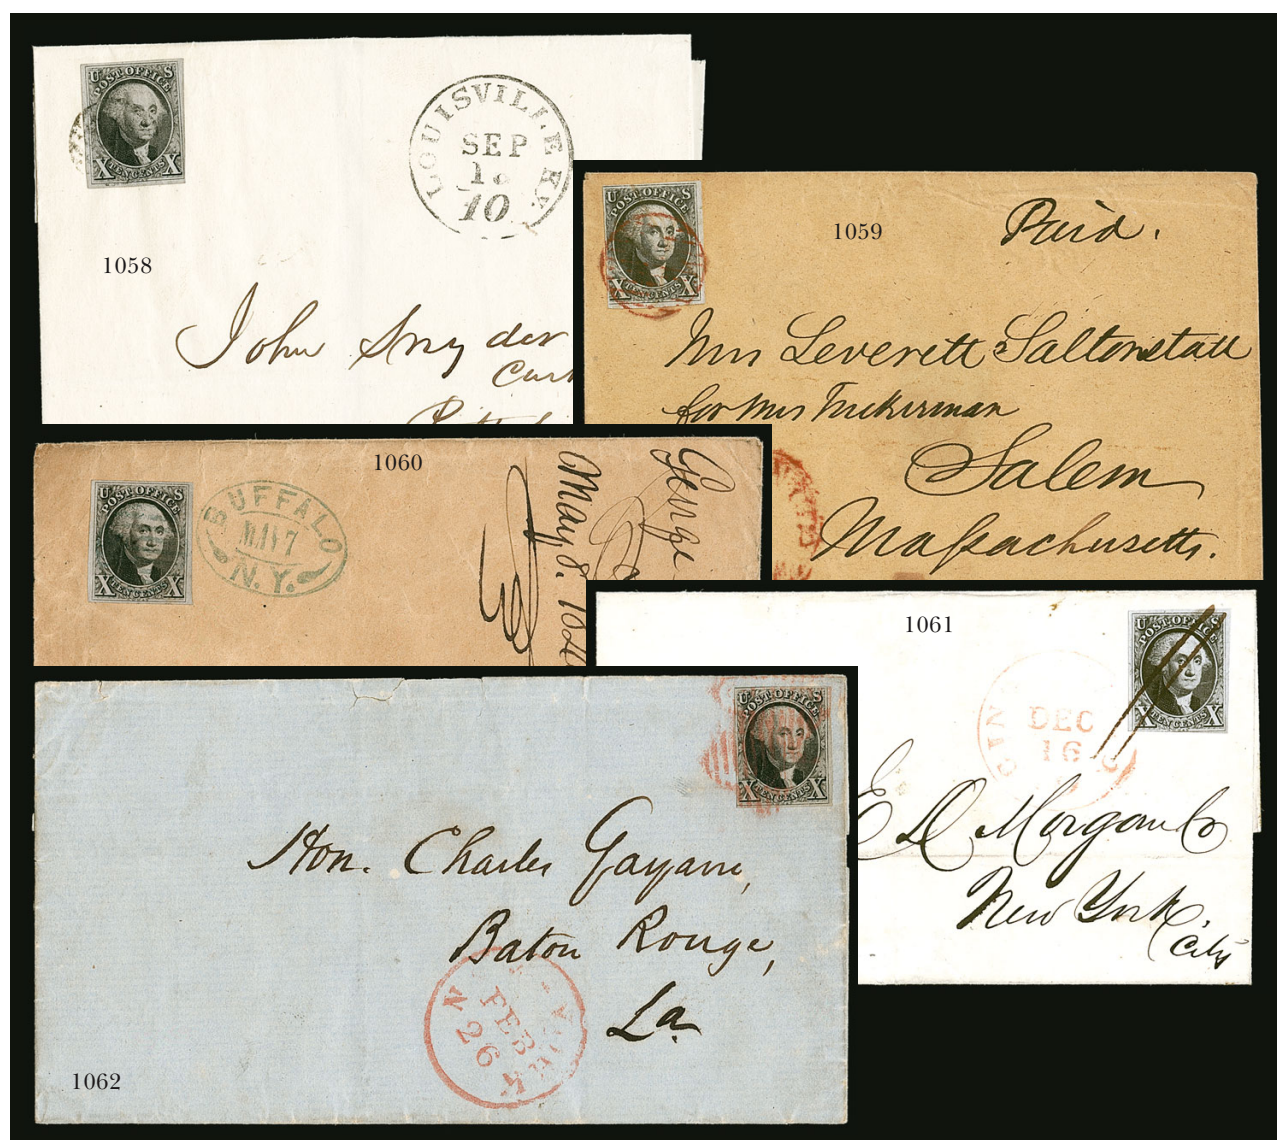 U S
POST OFFICE
X TEN CENTS X
LOUISVILLE Ky
SEP
10
1058
John Snyder
U S
POST OFFICE
X TEN CENTS X
1059
Paid.
Mrs Leverett Saltonstall
for Mrs Tuckerman
Salem
Massachusetts.
1060
U S
POST OFFICE
X TEN CENTS X
BUFFALO
MAY 7
N.Y.
George
May 8. 18
1061
U S
POST OFFICE
X TEN CENTS X
CIN
DEC
16
E D Morgan & Co
New York.
City
U S
POST OFFICE
X TEN CENTS X
Hon. Charles Gayarre,
Baton Rouge,
La
FEB
26
1062